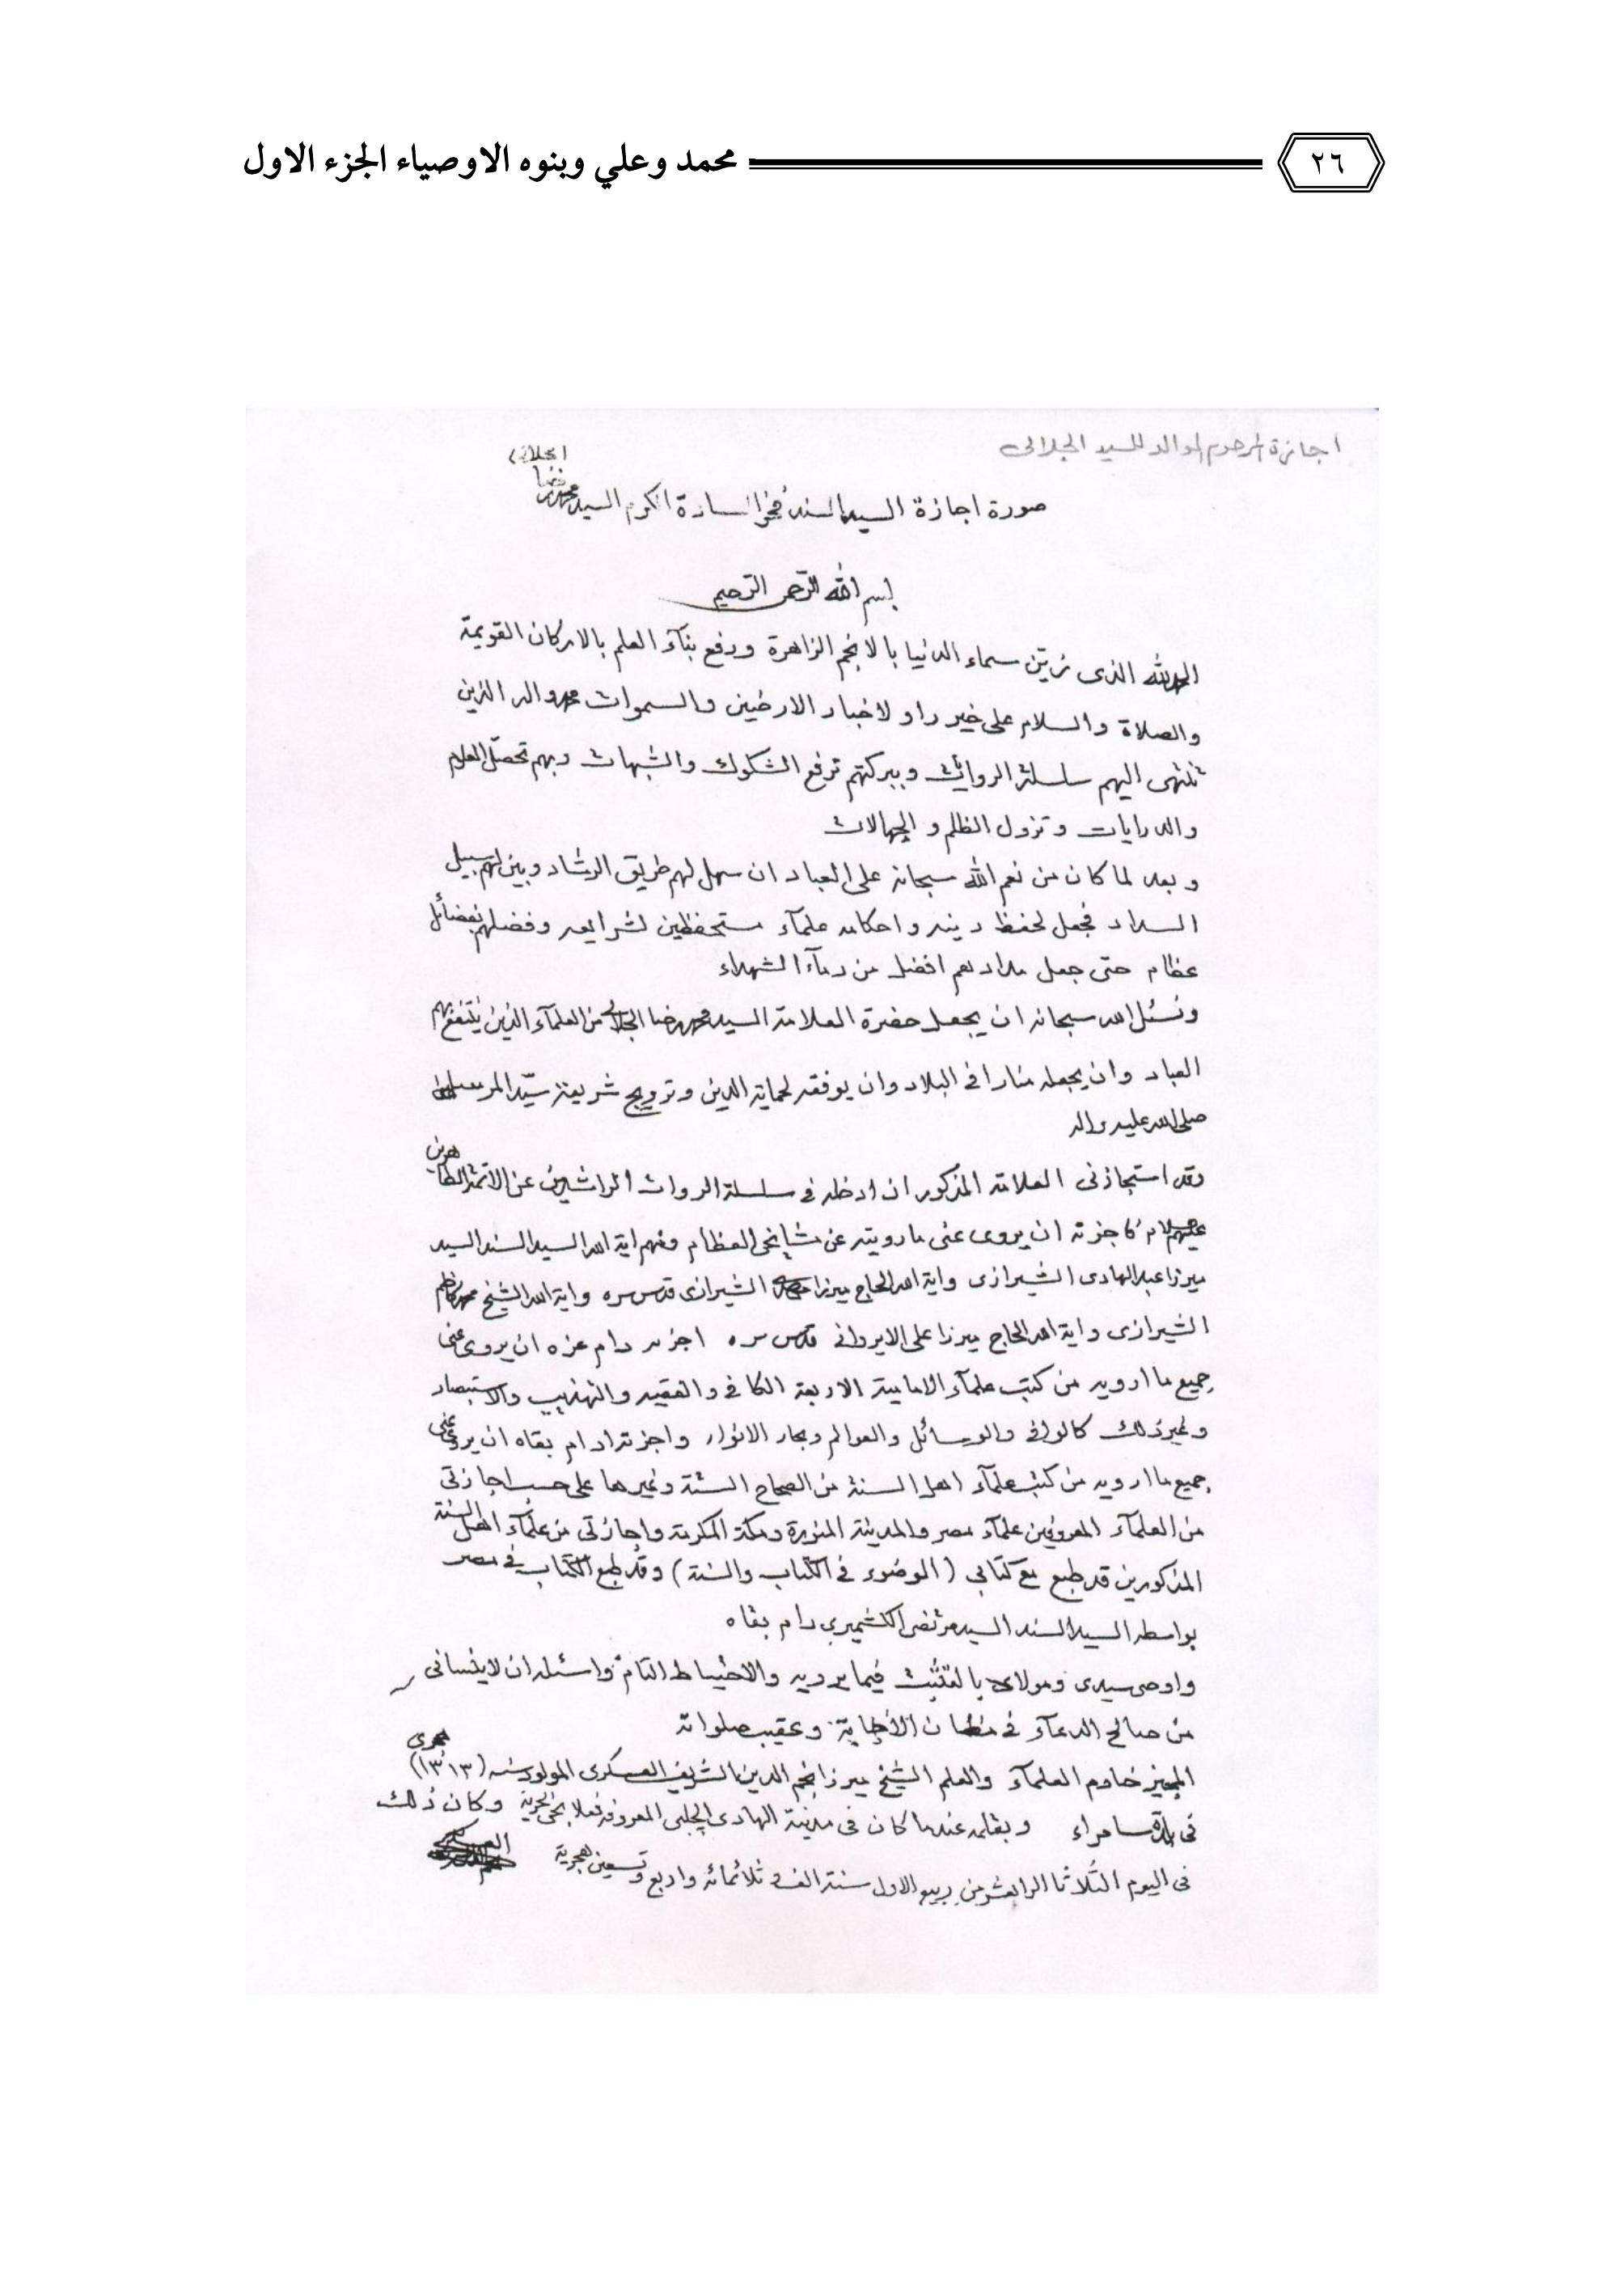 ٢٦ محمد وعلي وبنوه الاوصياء الجزء الاول
اجازة المرحوم الوالد للسيد الجلالى
الجلالى
صورة اجازة السيد السند فخر السادة الكرم السيد محمد رضا
بسم الله الرحمن الرحيم
الحمد لله الذى زيّن سماء الدنيا بالانجم الزاهرة ورفع بنآء العلم بالاركان القويمة
والصلاة والسلام على خير راو لاخبار الارضين والسموات محمد واله الذين
تنتهى اليهم سلسلة الروات وببركتهم ترفع الشكوك والشبهات وبهم تحصّل العلوم
والدرايات وتزول الظلم والجهالات
وبعد لما كان من نعم الله سبحانه على العباد ان سهل لهم طريق الرشاد وبين لهم سبيل
السداد فجعل لحفظ دينه واحكامه علمآء مستحفظين لشرايعه وفضلهم بفضائل
عظام حتى جعل مدادهم افضل من دمآء الشهداء
ونسئل الله سبحانه ان يجعل حضرة العلامة السيد محمد رضا الجلالى من العلمآء الذين ينتفع بهم
العباد وان يجعله منارا فى البلاد وان يوفقه لحماية الدين وترويج شريعة سيّد المرسلين
صلى الله عليه واله
وقد استجازنى العلامة المذكور ان ادخله فى سلسلة الروات الراشدين عن الائمة الطاهرين
عليهم السلام فاجزته ان يروى عنى ما رويته عن مشايخى العظام ومنهم اية الله السيد السند السيد
ميرزا عبد الهادى الشيرازى واية الله الحاج ميرزا الشيرازى قدس سره واية الله الشيخ محمد كاظم
الشيرازى واية الله الحاج ميرزا على الايروانى قدس سره اجزته دام عزه ان يروى عنى
جميع ما ارويه من كتب علمآء الامامية الاربعة الكافى والفقيه والتهذيب والاستبصار
وغير ذلك كالوافى والوسائل والعوالم وبحار الانوار واجزته ادام بقاه ان يروى عنى
جميع ما ارويه من كتب علمآء اهل السنة من الصحاح الستة وغيرها على حسب اجازتى
من العلمآء المعروفين علمآء مصر والمدينة المنورة ومكة المكرمة واجازتى من علمآء اهل السنة
المذكورين قد طبع مع كتابى (الوضوء فى الكتاب والسنة) وقد طبع الكتاب فى مصر
بواسطه السيد السند السيد مرتضى الكشميرى دام بقاه
واوصى سيدى ومولاى بالتثبت فيما يرويه والاحتياط التام واسئله ان لا ينسانى
من صالح الدعآء فى مظان الاجابة وعقيب صلواته
المجيز خادم العلمآء والعلم الشيخ ميرزا نجم الدين الشريف العسكرى المولود سنه (١٣١٣) هجرى
فى بلدة سامراء وبقلمه عندما كان فى مدينة الهادى الچلبى المعروفه فعلا بحى الحرية وكان ذلك
فى اليوم الثلاثا الرابع عشر من ربيع الاول سنة الف ثلاثمائة واربع وتسعين هجرية
العسكرى